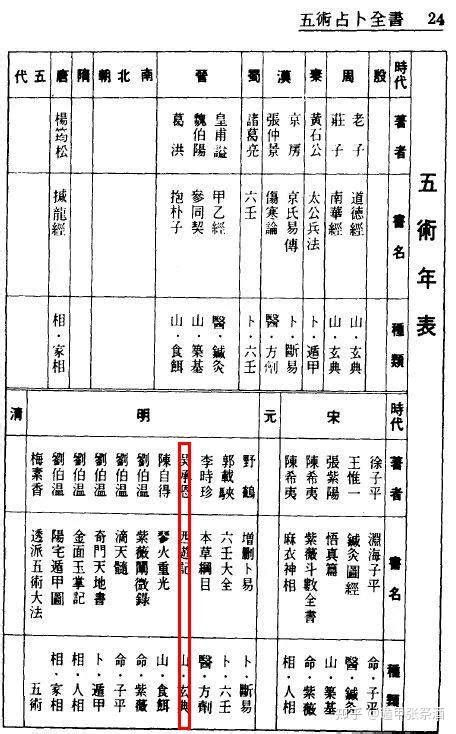 五術占卜全書 24
五術年表
時代
殷
周
秦
漢
蜀
晉
南北朝
隋
唐
五代
著者
老子
莊子
黃石公
京房
張仲景
諸葛亮
皇甫謐
魏伯陽
葛洪
楊筠松
書名
道德經
南華經
太公兵法
京氏易傳
傷寒論
六壬
甲乙經
參同契
抱朴子
撼龍經
種類
山・玄典
山・玄典
卜・遁甲
卜・斷易
醫・方劑
卜・六壬
醫・鍼灸
山・築基
山・食餌
相・家相
時代
宋
元
明
清
著者
徐子平
王惟一
張紫陽
陳希夷
陳希夷
野鶴
郭載騋
李時珍
吳承恩
陳自得
劉伯溫
劉伯溫
劉伯溫
劉伯溫
劉伯溫
梅素香
書名
淵海子平
鍼灸圖經
悟真篇
紫薇斗數全書
麻衣神相
增刪卜易
六壬大全
本草綱目
西遊記
琴火重光
紫薇闡微錄
滴天髓
奇門天地書
金面玉掌記
陽宅遁甲圖
透派五術大法
種類
命・子平
醫・鍼灸
山・築基
命・紫薇
相・人相
卜・斷易
卜・六壬
醫・方劑
山・玄典
山・食餌
命・紫薇
命・子平
卜・遁甲
相・人相
相・家相
五術
知乎 @遁甲张祭酒